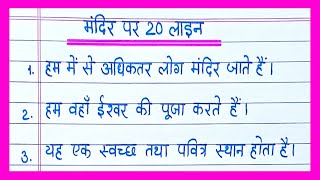 मंदिर पर 20 लाइन
1. हम में से अधिकतर लोग मंदिर जाते हैं।
2. हम वहाँ ईश्वर की पूजा करते हैं।
3. यह एक स्वच्छ तथा पवित्र स्थान होता है।